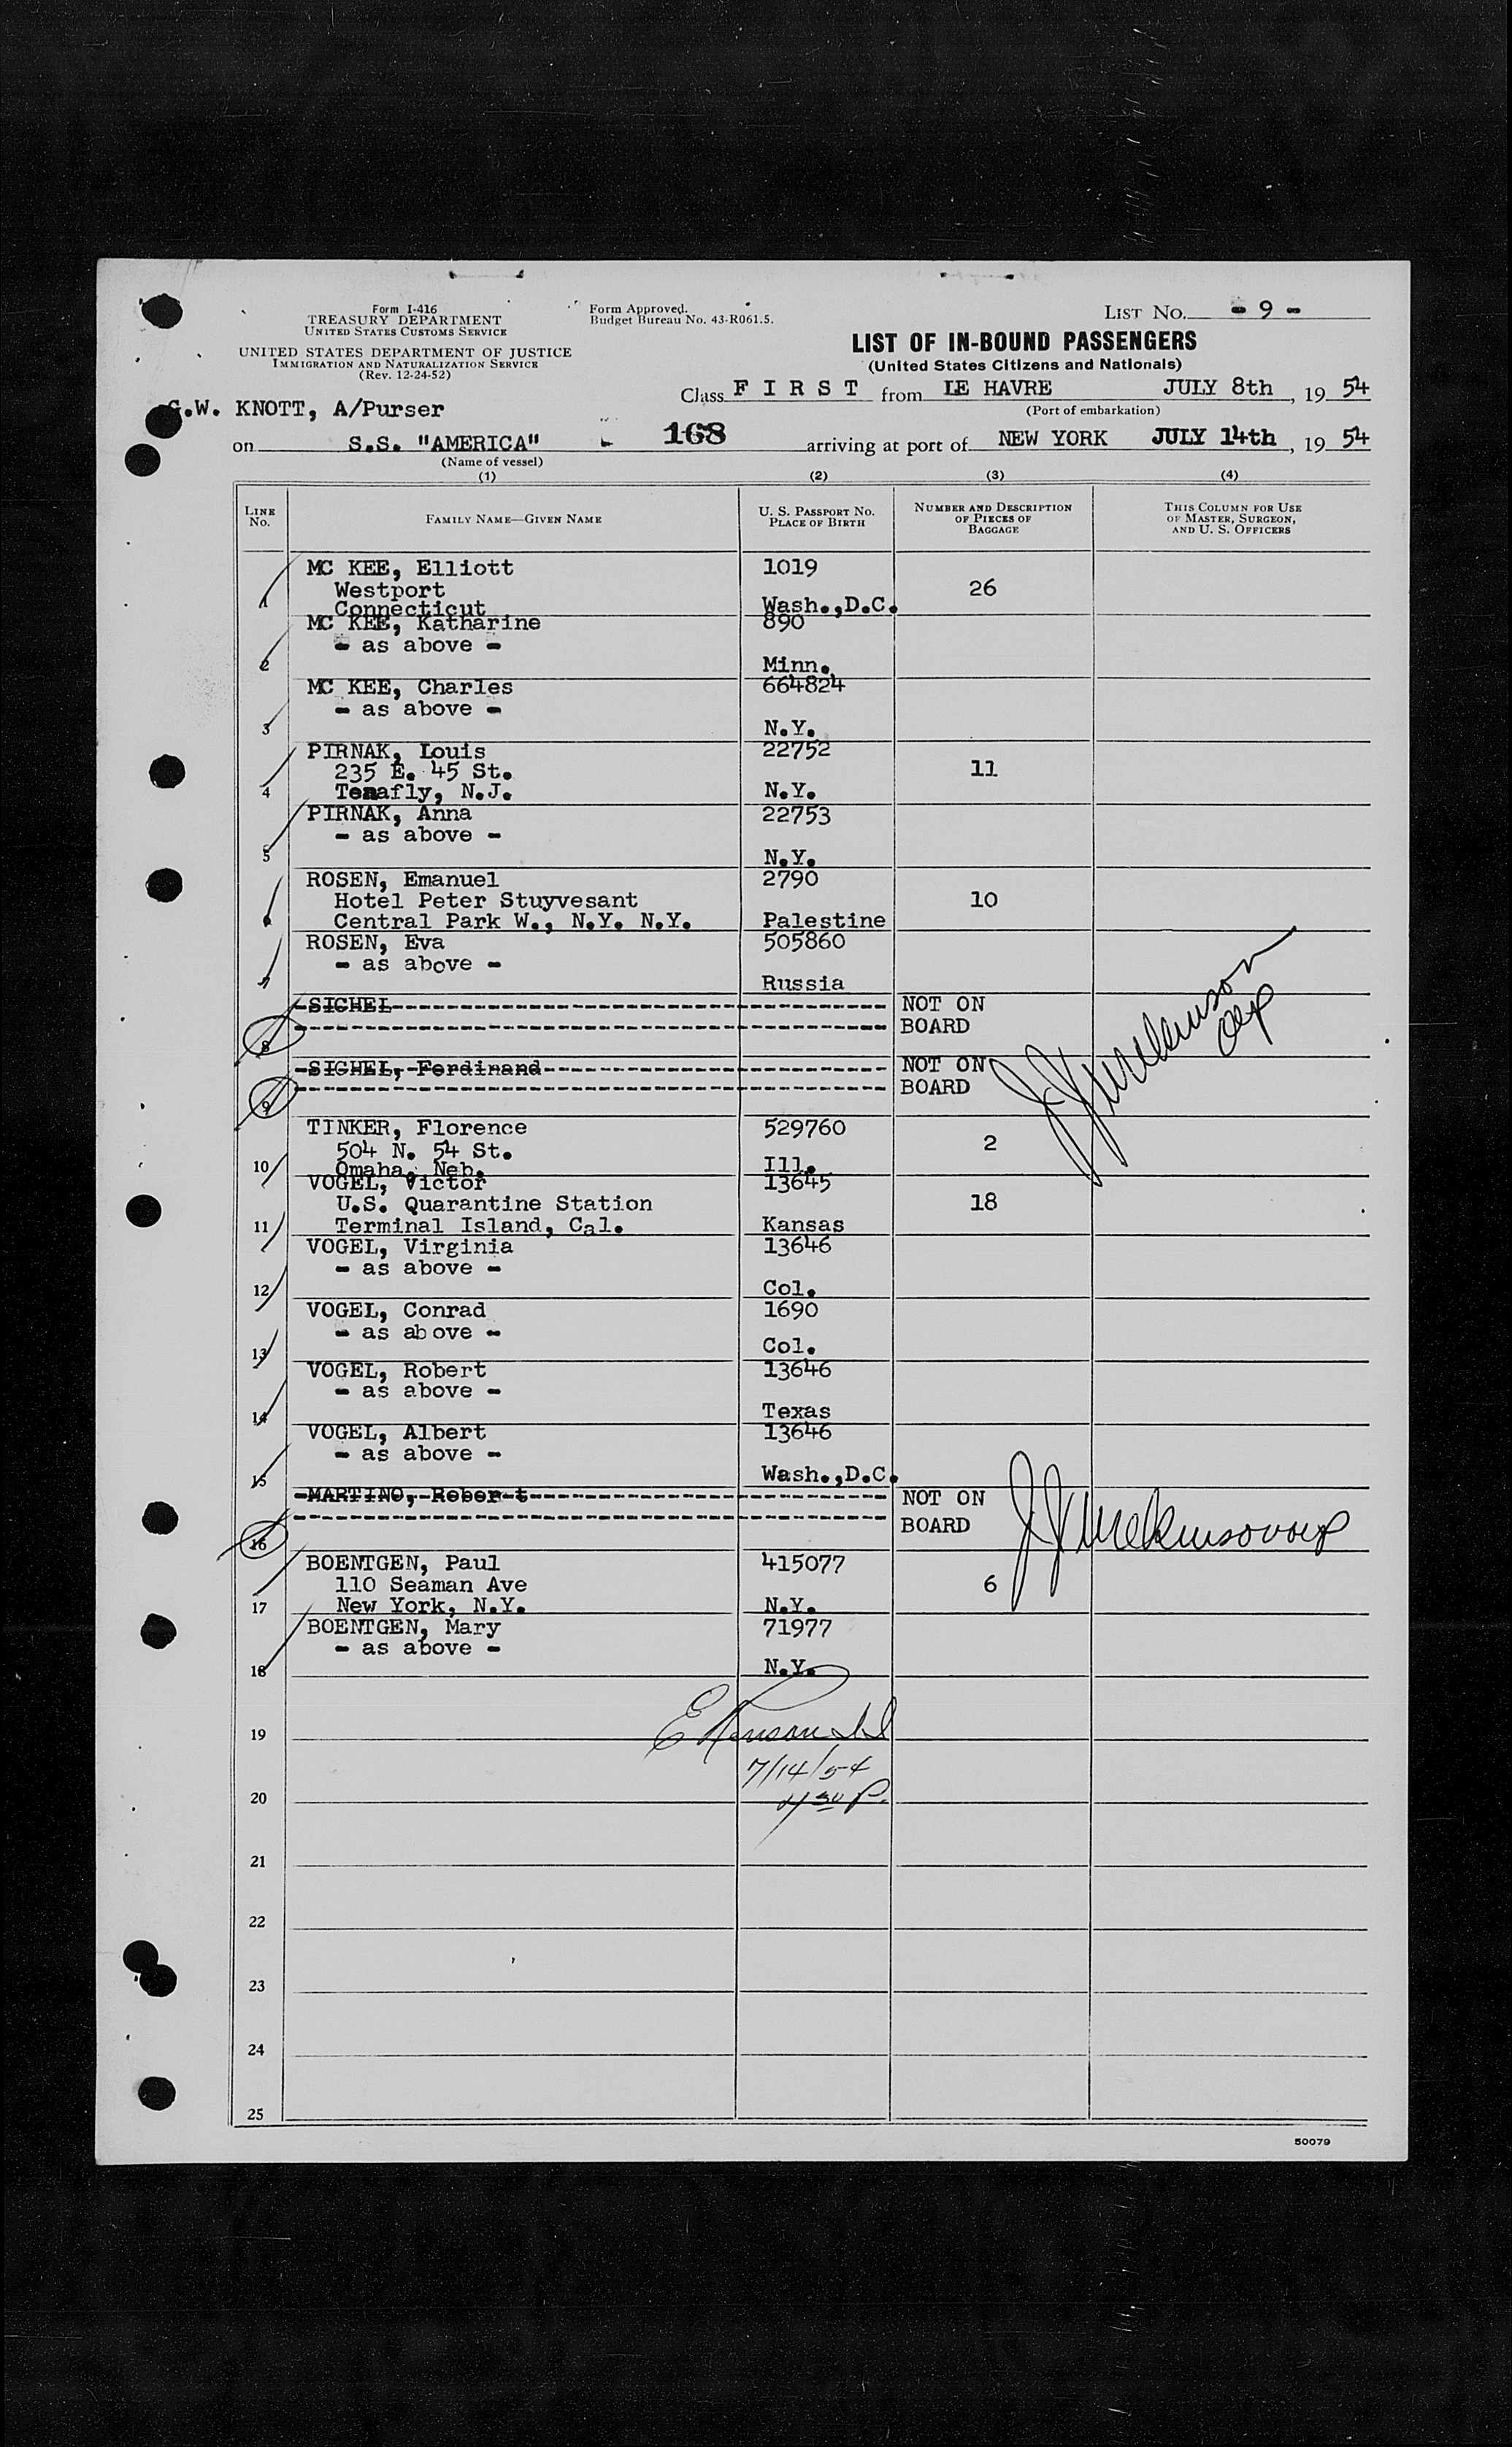 Form I-416
TREASURY DEPARTMENT
UNITED STATES CUSTOMS SERVICE
UNITED STATES DEPARTMENT OF JUSTICE
IMMIGRATION AND NATURALIZATION SERVICE
(Rev. 12-24-52)
Form Approved.
Budget Bureau No. 43-R061.5.
LIST NO. - 9 -
LIST OF IN-BOUND PASSENGERS
(United States Citizens and Nationals)
Class F I R S T from LE HAVRE JULY 8th, 1954
(Port of embarkation)
G.W. KNOTT, A/Purser
on S.S. "AMERICA" - 168 arriving at port of NEW YORK JULY 14th, 1954
(Name of vessel)
(1) (2) (3) (4)
LINE NO. FAMILY NAME—GIVEN NAME U. S. PASSPORT NO. PLACE OF BIRTH NUMBER AND DESCRIPTION OF PIECES OF BAGGAGE THIS COLUMN FOR USE OF MASTER, SURGEON, AND U. S. OFFICERS
MC KEE, Elliott 1019
Westport 26
1 Connecticut Wash.,D.C.
MC KEE, Katharine 890
- as above -
2 Minn.
MC KEE, Charles 664824
- as above -
3 N.Y.
PIRNAK, Louis 22752
235 E. 45 St. 11
4 Tenafly, N.J. N.Y.
PIRNAK, Anna 22753
- as above -
5 N.Y.
ROSEN, Emanuel 2790
Hotel Peter Stuyvesant 10
Central Park W., N.Y. N.Y. Palestine
ROSEN, Eva 505860
- as above -
7 Russia
SICHEL NOT ON
BOARD
8
SICHEL, Ferdinand NOT ON
BOARD
9
TINKER, Florence 529760
504 N. 54 St. 2
10 Omaha, Neb. Ill.
VOGEL, Victor 13645
U.S. Quarantine Station 18
11 Terminal Island, Cal. Kansas
VOGEL, Virginia 13646
- as above -
12 Col.
VOGEL, Conrad 1690
- as above -
13 Col.
VOGEL, Robert 13646
- as above -
14 Texas
VOGEL, Albert 13646
- as above -
15 Wash.,D.C.
MARTINO, Robert NOT ON
BOARD
16
BOENTGEN, Paul 415077
110 Seaman Ave 6
17 New York, N.Y. N.Y.
BOENTGEN, Mary 71977
- as above -
18 N.Y.
19
7/14/54
20 4 30 P.
21
22
23
24
25
50079